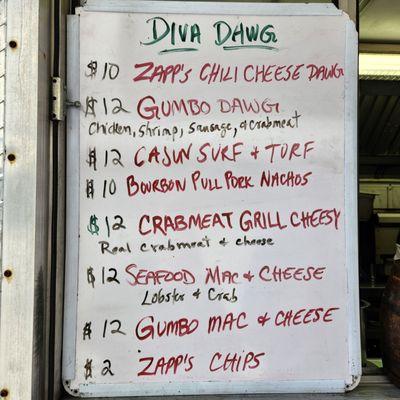 DIVA DAWG
$10 ZAPP'S CHILI CHEESE DAWG
$12 GUMBO DAWG
Chicken, Shrimp, Sausage, & Crabmeat
$12 CAJUN SURF & TURF
$10 BOURBON PULL PORK NACHOS
$12 CRABMEAT GRILL CHEESY
Real crabmeat & cheese
$12 SEAFOOD MAC & CHEESE
Lobster & Crab
$12 GUMBO MAC & CHEESE
$2 ZAPP'S CHIPS